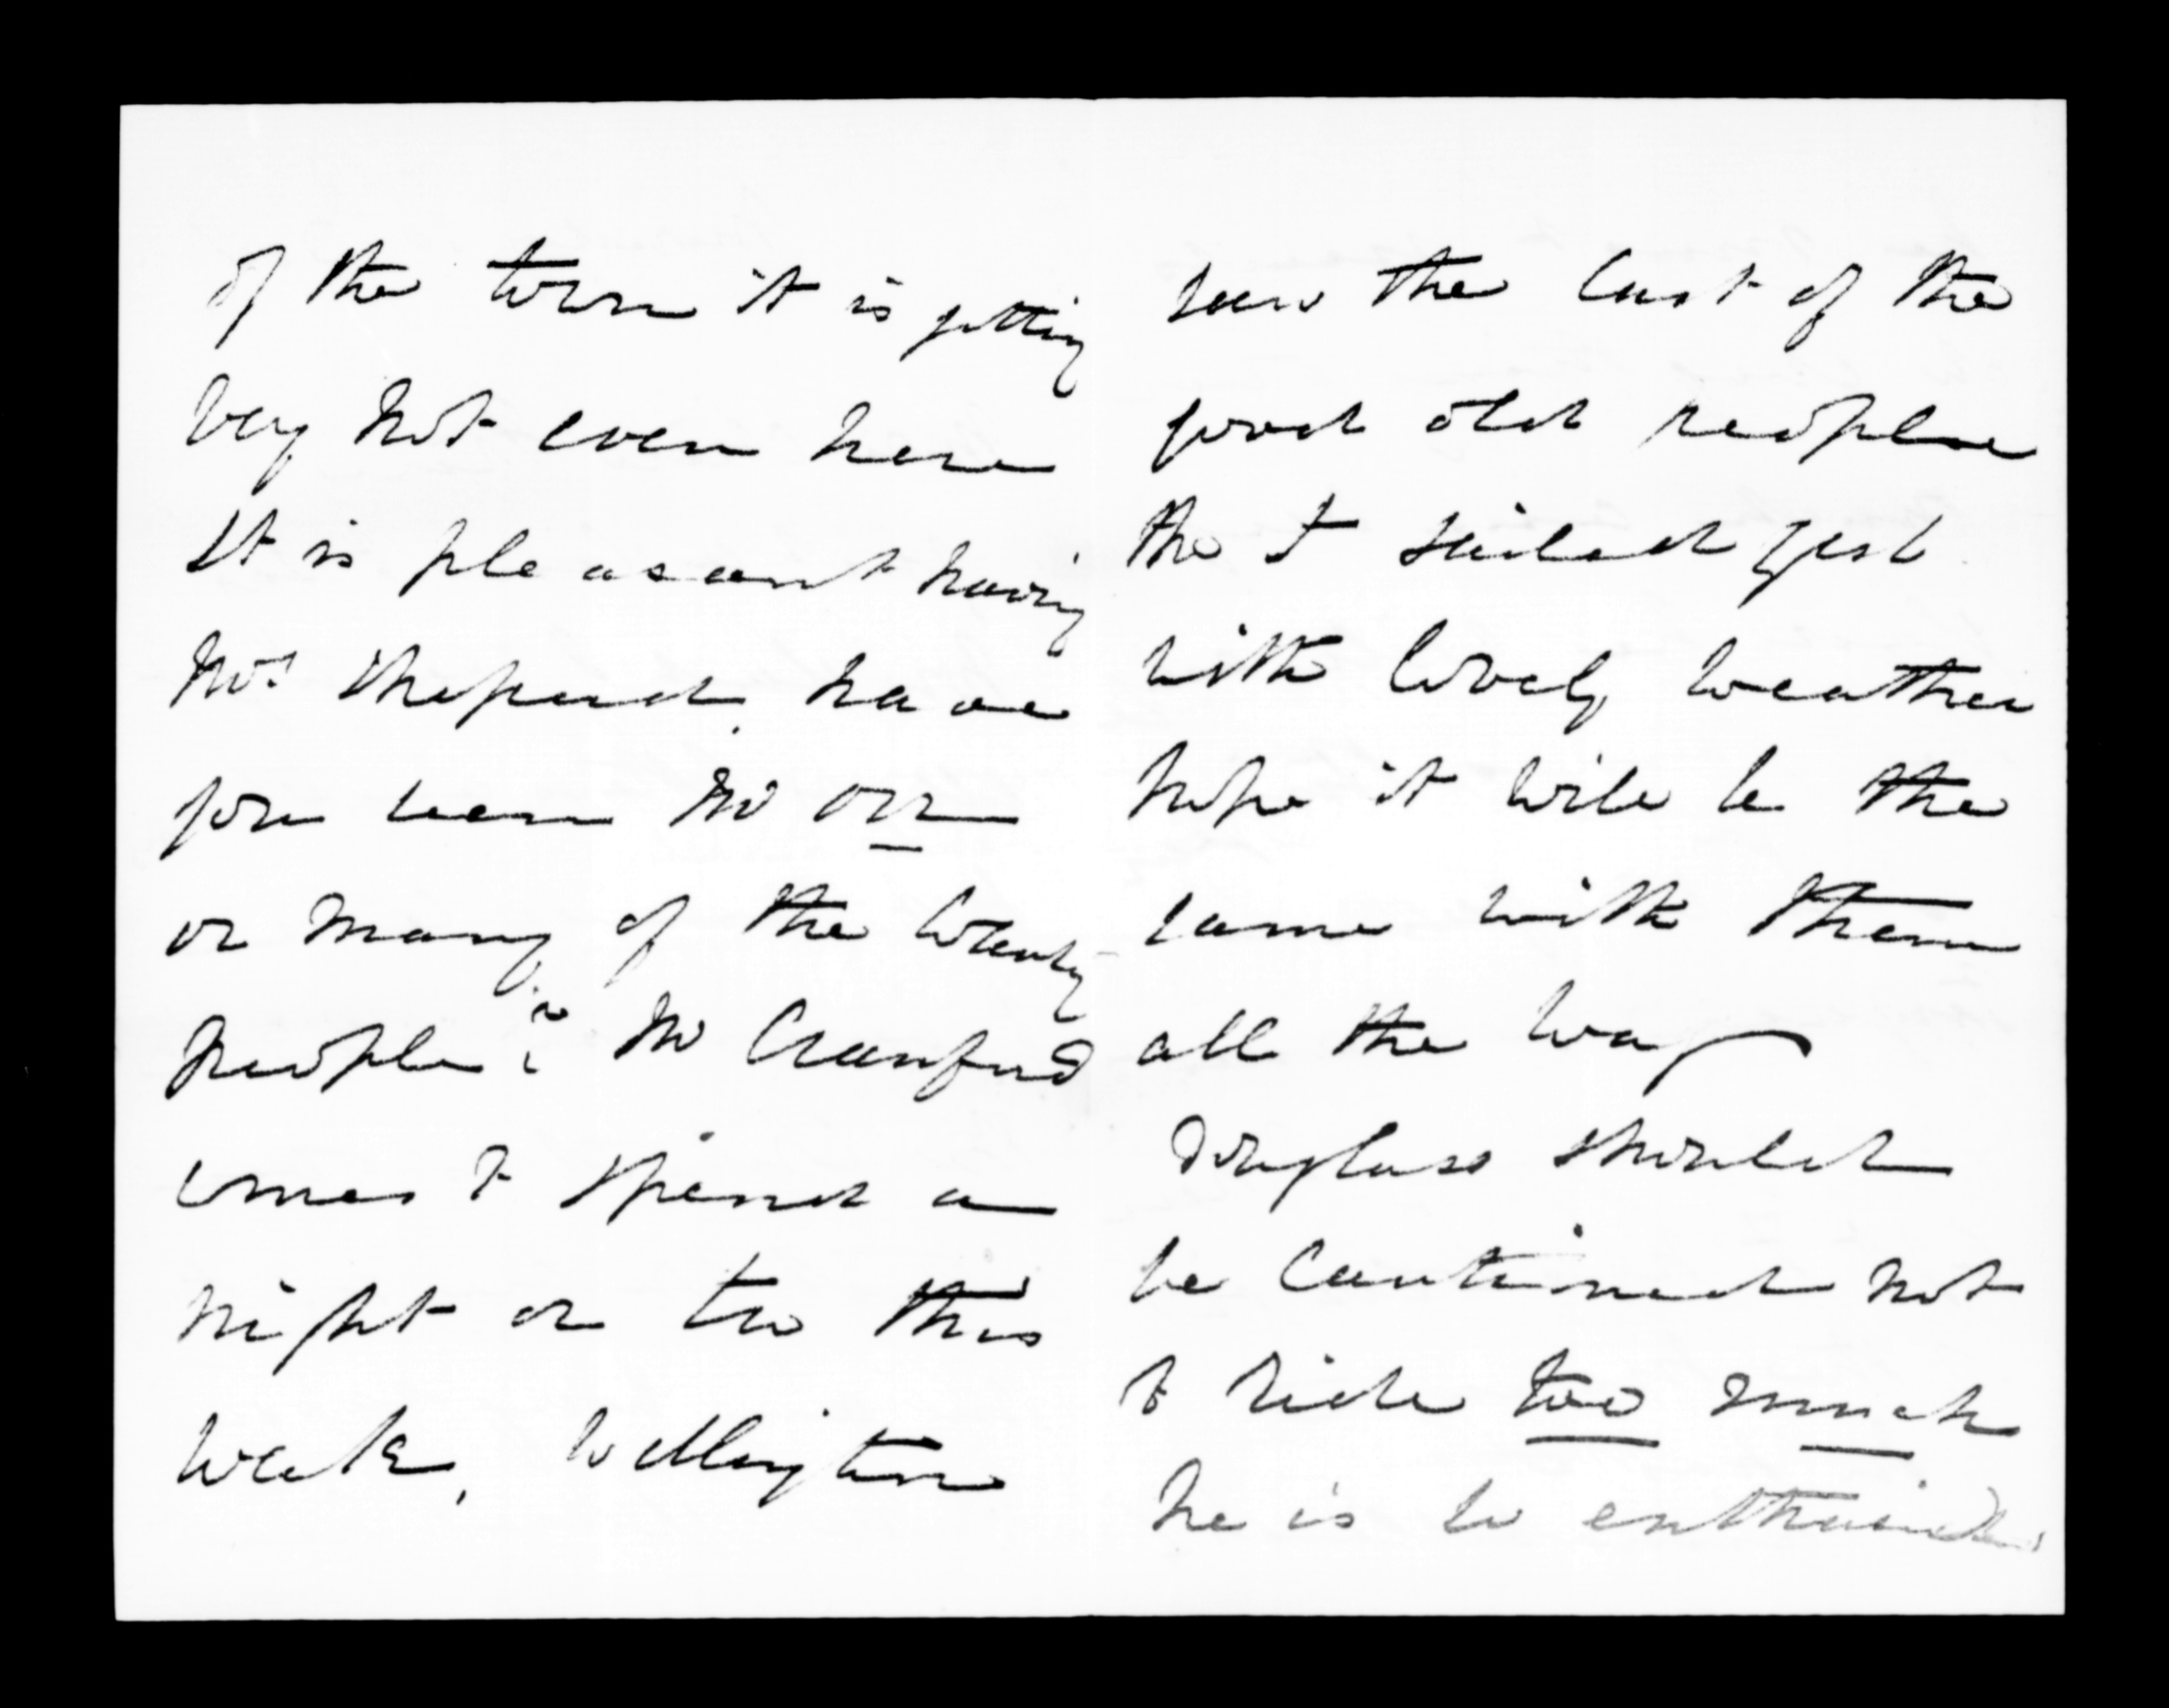 of the town it is getting
very hot even here
It is pleasant having
Mrs Sheperd, have
you seen Mr Orr
or many of the
People? Mr Craufurd
comes to spend a
night or two this
week, Wellington
saw the last of the
good old people
the I sailed yest
with lovely weather
hope it will be the
same with them
all the way
Douglass should
be cautioned not
to ride too much
he is so